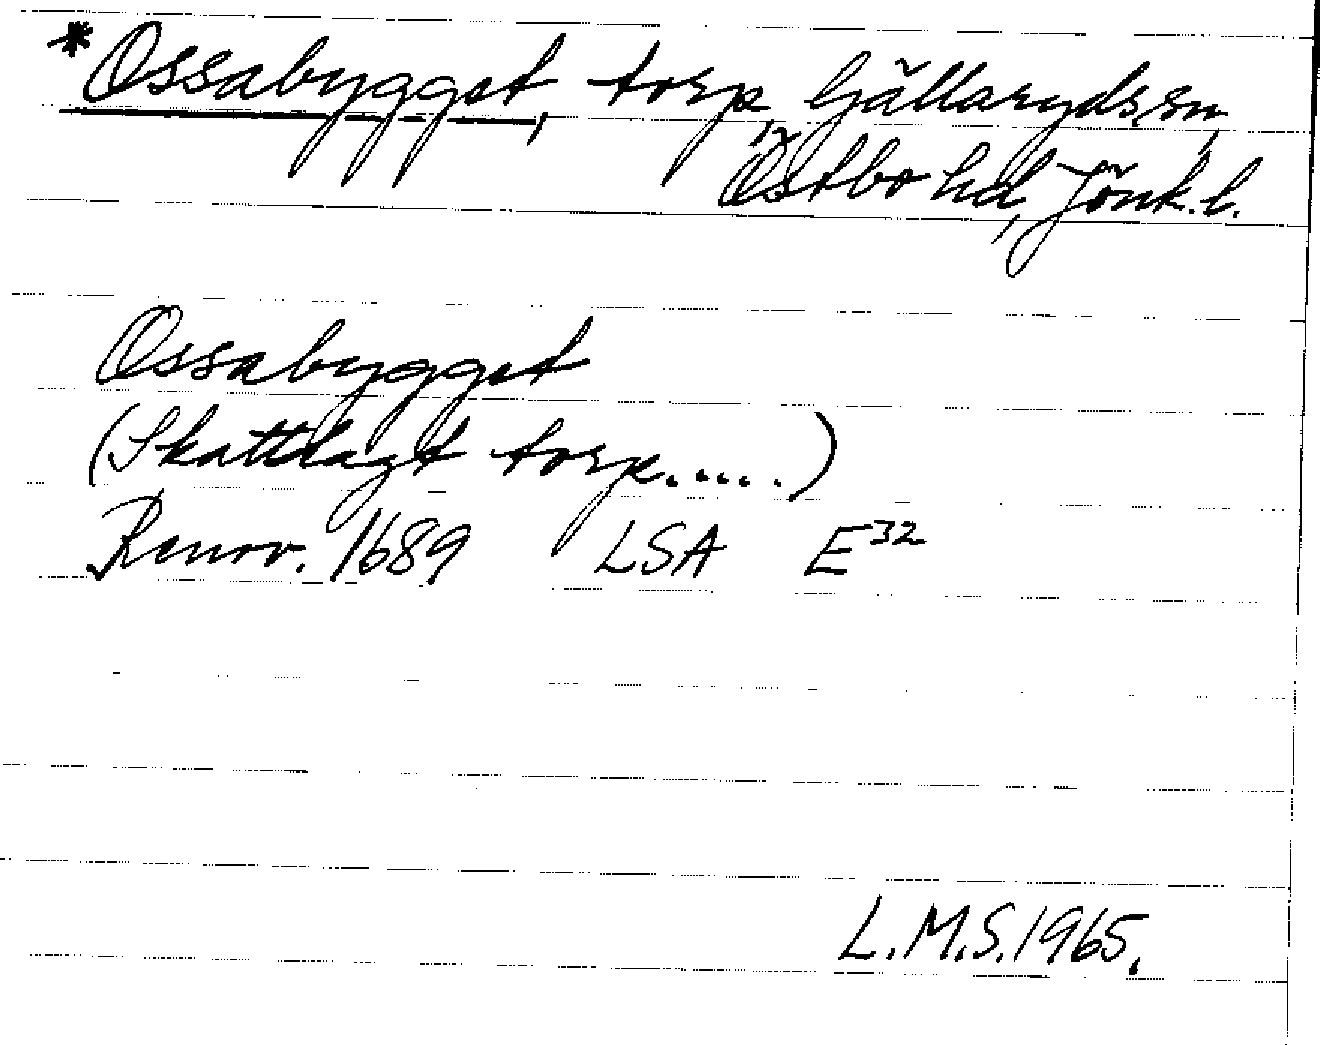 *Ossabygget, torp, Gällaryds sn,
Östbo hd, Jönk. l.
Ossabygget
(Skattlagt torp.....)
Renov. 1689 LSA E32
L.M.S. 1965.